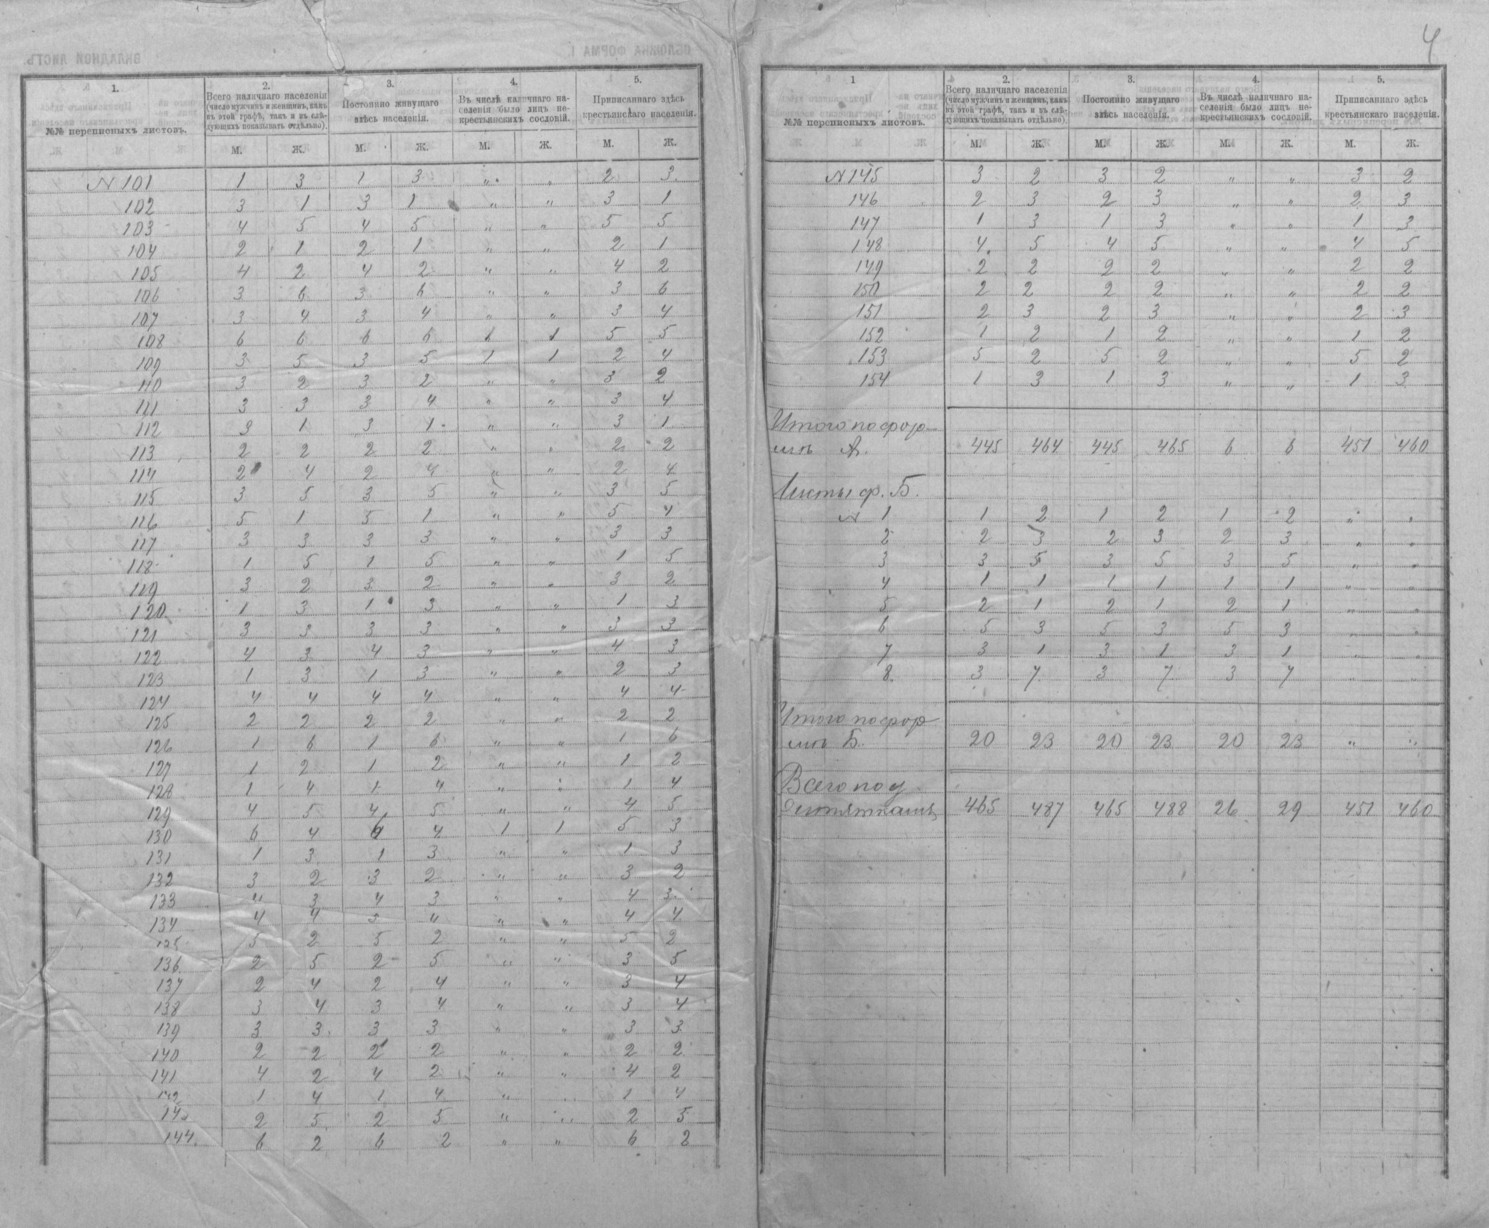 4
ВКЛАДНОЙ ЛИСТЪ.
ОБЛОЖКА ФОРМА 1
1. 2. 3. 4. 5.
№№ переписныхъ листовъ.
Всего наличнаго населенія (число мужчинъ и женщинъ, какъ въ этой графѣ, такъ и въ слѣдующихъ показывать отдѣльно).
Постоянно живущаго здѣсь населенія.
Въ числѣ наличнаго населенія было лицъ некрестьянскихъ сословій.
Приписаннаго здѣсь крестьянскаго населенія.
М. Ж. М. Ж. М. Ж. М. Ж.
№ 101 1 3 1 3 „ „ 2 3
102 3 1 3 1 „ „ 3 1
103 4 5 4 5 „ „ 5 5
104 2 1 2 1 „ „ 2 1
105 4 2 4 2 „ „ 4 2
106 3 6 3 6 „ „ 3 6
107 3 4 3 4 „ „ 3 4
108 6 6 6 6 1 1 5 5
109 3 5 3 5 1 1 2 4
110 3 2 3 2 „ „ 3 2
111 3 3 3 4 „ „ 3 4
112 3 1 3 1 „ „ 3 1
113 2 2 2 2 „ „ 2 2
114 2 4 2 4 „ „ 2 4
115 3 5 3 5 „ „ 3 5
116 5 1 5 1 „ „ 5 4
117 3 3 3 3 „ „ 3 3
118 1 5 1 5 „ „ 1 5
119 3 2 3 2 „ „ 3 2
120 1 3 1 3 „ „ 1 3
121 3 3 3 3 „ „ 3 3
122 4 3 4 3 „ „ 4 3
123 1 3 1 3 „ „ 2 3
124 4 4 4 4 „ „ 4 4
125 2 2 2 2 „ „ 2 2
126 1 6 1 6 „ „ 1 6
127 1 2 1 2 „ „ 1 2
128 1 4 1 4 „ „ 1 4
129 4 5 4 5 „ „ 4 5
130 6 4 4 1 1 5 3
131 1 3 1 3 „ „ 1 3
132 3 2 3 2 „ „ 3 2
133 4 3 4 3 „ „ 4 3
134 4 4 4 „ „ 4 4
135 5 2 5 2 „ „ 5 2
136 2 5 2 5 „ „ 3 5
137 2 4 2 4 „ „ 3 4
138 3 4 3 4 „ „ 3 4
139 3 3 3 3 „ „ 3 3
140 2 2 2 2 „ „ 2 2
141 4 2 4 2 „ „ 4 2
142 1 4 1 4 „ „ 1 4
143 2 5 2 5 „ „ 2 5
144. 6 2 6 2 „ „ 6 2
1 2. 3. 4. 5.
№№ переписныхъ листовъ.
Всего наличнаго населенія (число мужчинъ и женщинъ, какъ въ этой графѣ, такъ и въ слѣдующихъ показывать отдѣльно).
Постоянно живущаго здѣсь населенія.
Въ числѣ наличнаго населенія было лицъ некрестьянскихъ сословій.
Приписаннаго здѣсь крестьянскаго населенія.
М. Ж. М. Ж. М. Ж. М. Ж.
№ 145 3 2 3 2 „ „ 3 2
146 2 3 2 3 „ „ 2 3
147 1 3 1 3 „ „ 1 3
148 4 5 4 5 „ „ 4 5
149 2 2 2 2 „ „ 2 2
150 2 2 2 2 „ „ 2 2
151 2 3 2 3 „ „ 2 3
152 1 2 1 2 „ „ 1 2
153 5 2 5 2 „ „ 5 2
154 1 3 1 3 „ „ 1 3
Итого по фор-
мѣ А. 445 464 445 465 6 6 451 460
Листы ф. Б.
№ 1 1 2 1 2 1 2 „ „
2 2 3 2 3 2 3 „ „
3 3 5 3 5 3 5 „ „
4 1 1 1 1 1 1 „ „
5 2 1 2 1 2 1 „ „
6 5 3 5 3 5 3 „ „
7 3 1 3 1 3 1 „ „
8. 3 7 3 7 3 7 „ „
Итого по фор
мѣ Б. 20 23 20 23 20 23 „ „
Всего по у
465 487 465 488 26 29 451 460